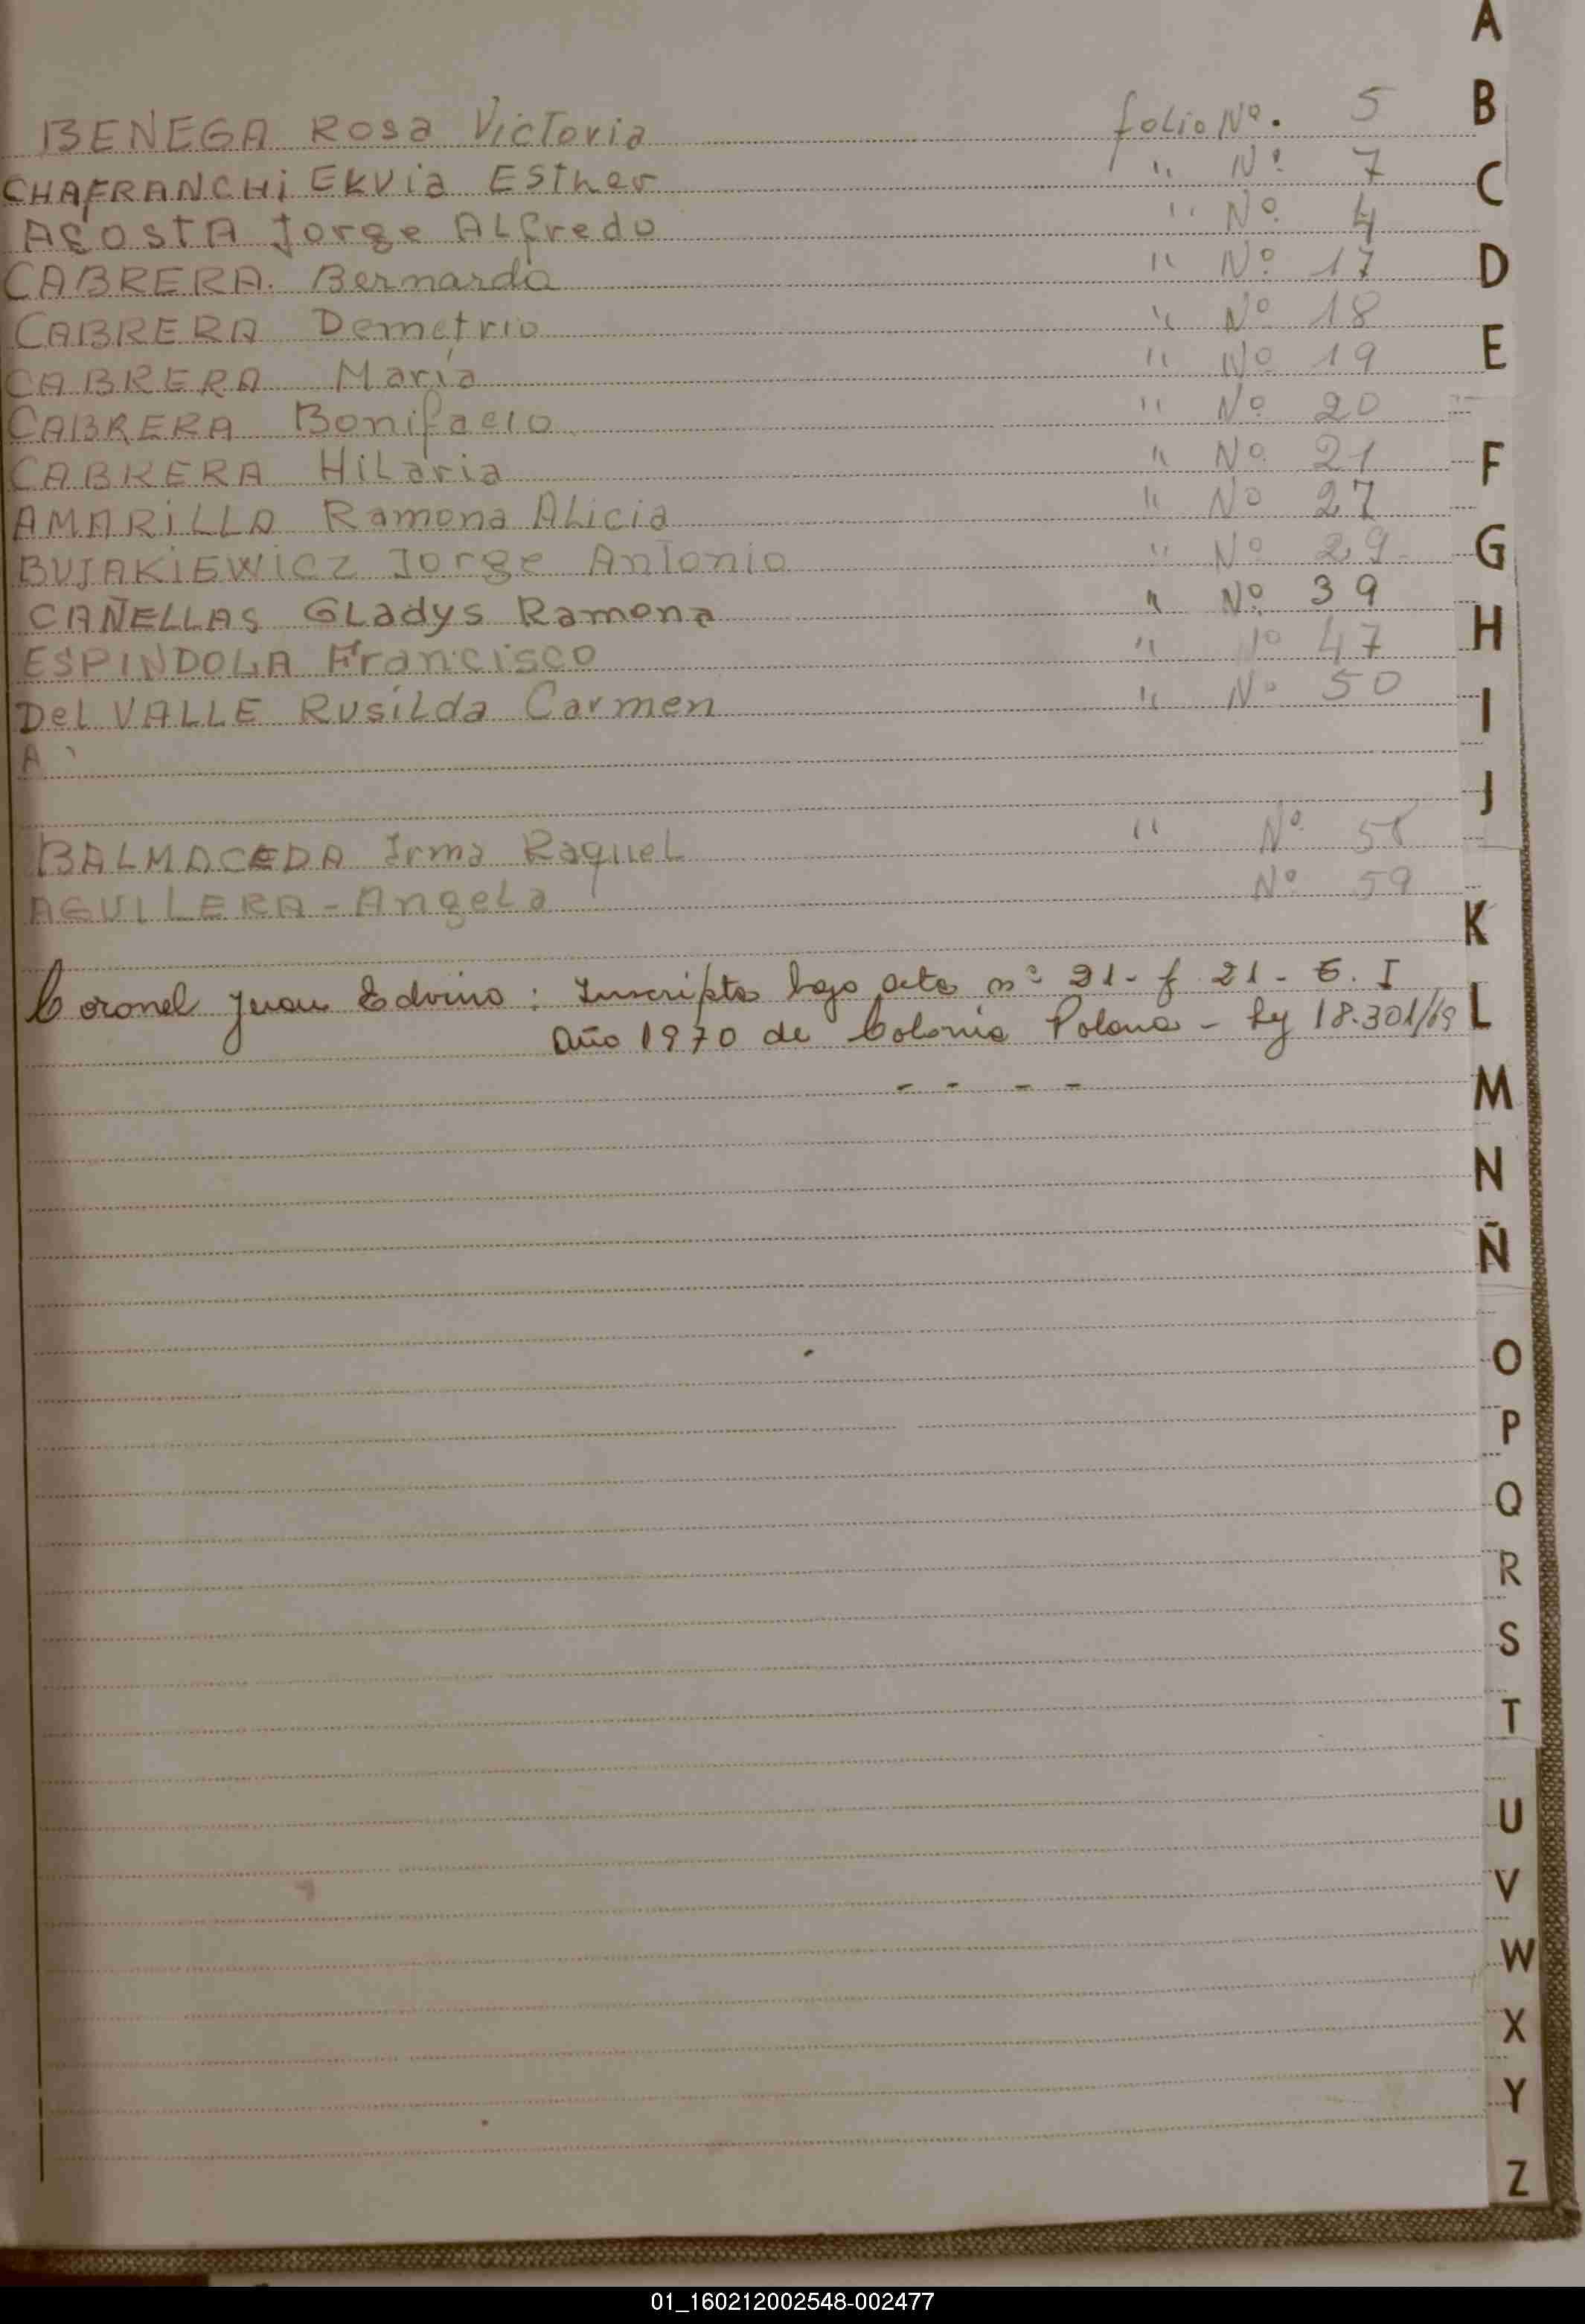 A
BENEGA Rosa Victoria folio Nº. 5
B
CHAFRANCHi EKVia Esther " Nº 7
C
ACOSTA Jorge ALfredo " Nº 4
CABRERA. Bernarda " Nº 17
D
CABRERA Demetrio " Nº 18
CABRERA María " Nº 19
E
CABRERA Bonifacio " Nº 20
CABRERA HiLaria " Nº 21
F
AMARiLLA Ramona ALicia " Nº 27
BUJAKiEWicz Jorge Antonio " Nº 29
G
CAÑELLAS GLadys Ramona " Nº 39
H
ESPINDOLA Francisco " Nº 47
Del VALLE Rusilda Carmen " Nº 50
I
A
J
BALMACEDA Irma RaqueL " Nº
AGUILERA - AngeLa Nº 59
K
Coronel Juan Edvino : Inscripta bajo acta nº 21 - f. 21 - . I
L
Año 1970 de Colonia Polana - Ley 18.301/69
- - - -
M
N
Ñ
O
P
Q
R
S
T
U
V
W
X
Y
Z
01_160212002548-002477